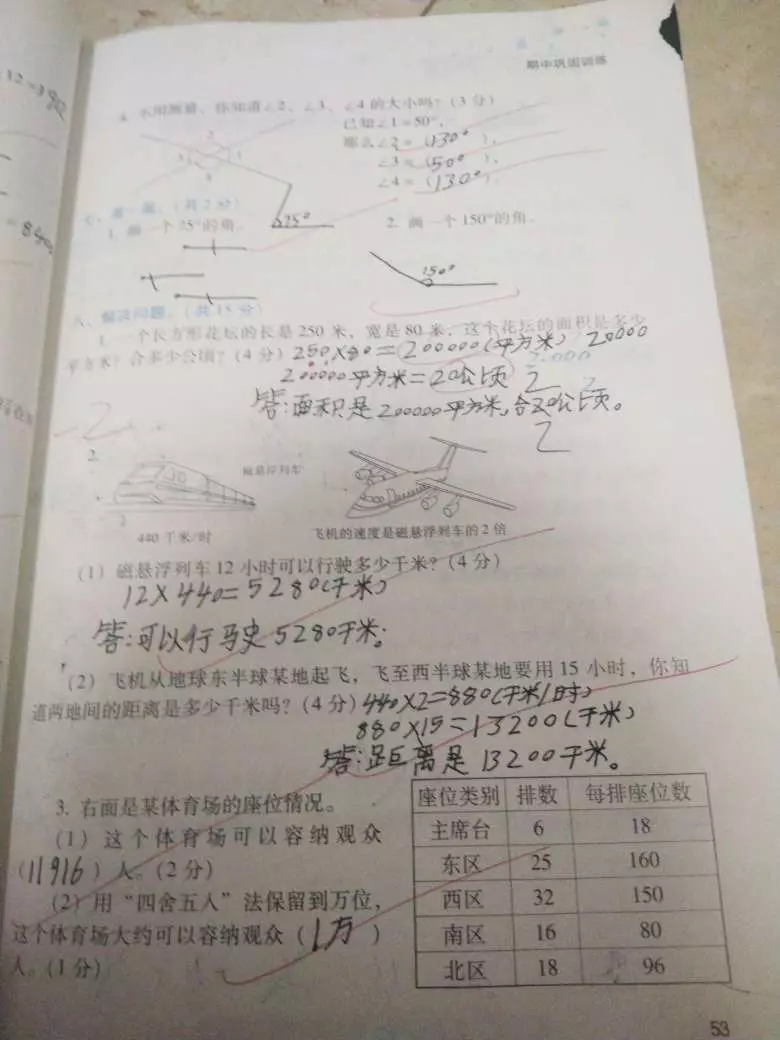 期中巩固训练
4. 不用测量,你知道∠2、∠3、∠4 的大小吗?(3 分)
已知∠1=50°,
那么∠2=(130°),
∠3=(50°),
∠4=(130°).
2
3
1
4
(共 2 分)
1. 画一个 75°的角。
2. 画一个 150°的角。
75°
150°
八、解决问题。(共 15 分)
1. 一个长方形花坛的长是 250 米,宽是 80 米,这个花坛的面积是多少
平方米?合多少公顷?(4 分) 250×80=200000(平方米) 20000
200000平方米=20公顷 2
答:面积是200000平方米,合20公顷。
2
-2
2.
磁悬浮列车
440 千米/时
飞机的速度是磁悬浮列车的 2 倍
(1) 磁悬浮列车 12 小时可以行驶多少千米?(4 分)
12×440=5280(千米)
答:可以行马史5280千米。
(2) 飞机从地球东半球某地起飞,飞至西半球某地要用 15 小时,你知
道两地间的距离是多少千米吗?(4 分) 440×2=880(千米/时)
880×15=13200(千米)
答:距离是13200千米。
3. 右面是某体育场的座位情况。
(1) 这个体育场可以容纳观众
(11916)人。(2 分)
(2) 用“四舍五入”法保留到万位,
这个体育场大约可以容纳观众(1万)
人。(1 分)
座位类别 排数 每排座位数
主席台 6 18
东区 25 160
西区 32 150
南区 16 80
北区 18 96
53